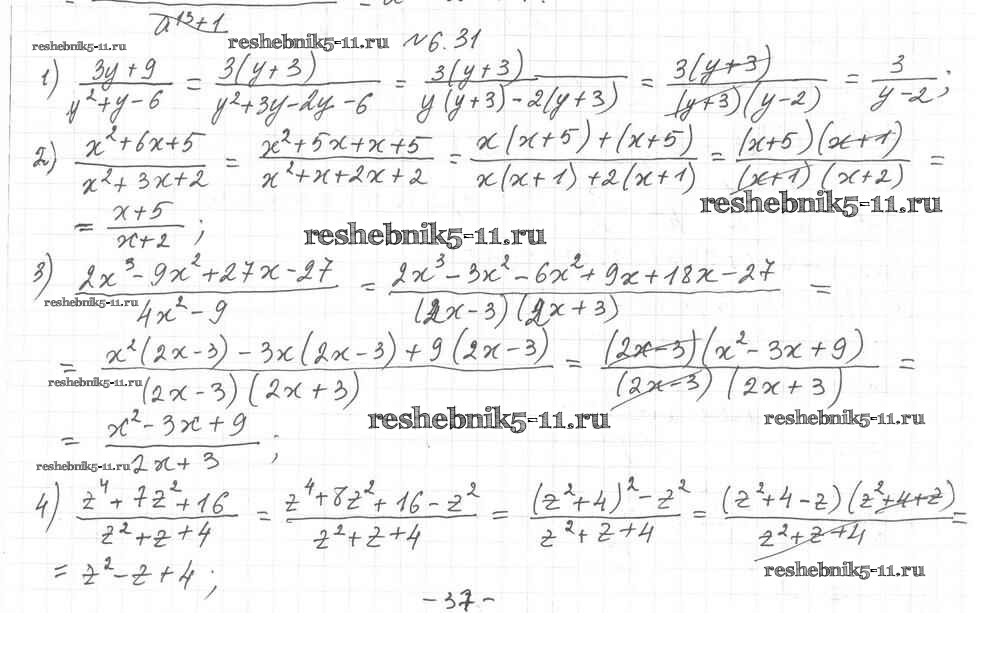 a¹³+1
reshebnik5-11.ru reshebnik5-11.ru №6.31
1) (3y+9)/(y²+y-6) = 3(y+3)/(y²+3y-2y-6) = 3(y+3)/(y(y+3)-2(y+3)) = 3(y+3)/((y+3)(y-2)) = 3/(y-2);
2) (x²+6x+5)/(x²+3x+2) = (x²+5x+x+5)/(x²+x+2x+2) = (x(x+5)+(x+5))/(x(x+1)+2(x+1)) = (x+5)(x+1)/((x+1)(x+2)) =
reshebnik5-11.ru
= (x+5)/(x+2);
reshebnik5-11.ru
3) (2x³-9x²+27x-27)/(4x²-9) = (2x³-3x²-6x²+9x+18x-27)/((2x-3)(2x+3)) =
reshebnik5-11.ru
= (x²(2x-3)-3x(2x-3)+9(2x-3))/((2x-3)(2x+3)) = (2x-3)(x²-3x+9)/((2x-3)(2x+3)) =
reshebnik5-11.ru
reshebnik5-11.ru reshebnik5-11.ru
= (x²-3x+9)/(2x+3);
reshebnik5-11.ru
4) (z⁴+7z²+16)/(z²+z+4) = (z⁴+8z²+16-z²)/(z²+z+4) = ((z²+4)²-z²)/(z²+z+4) = (z²+4-z)(z²+4+z)/(z²+z+4) =
= z²-z+4;
reshebnik5-11.ru
-37-